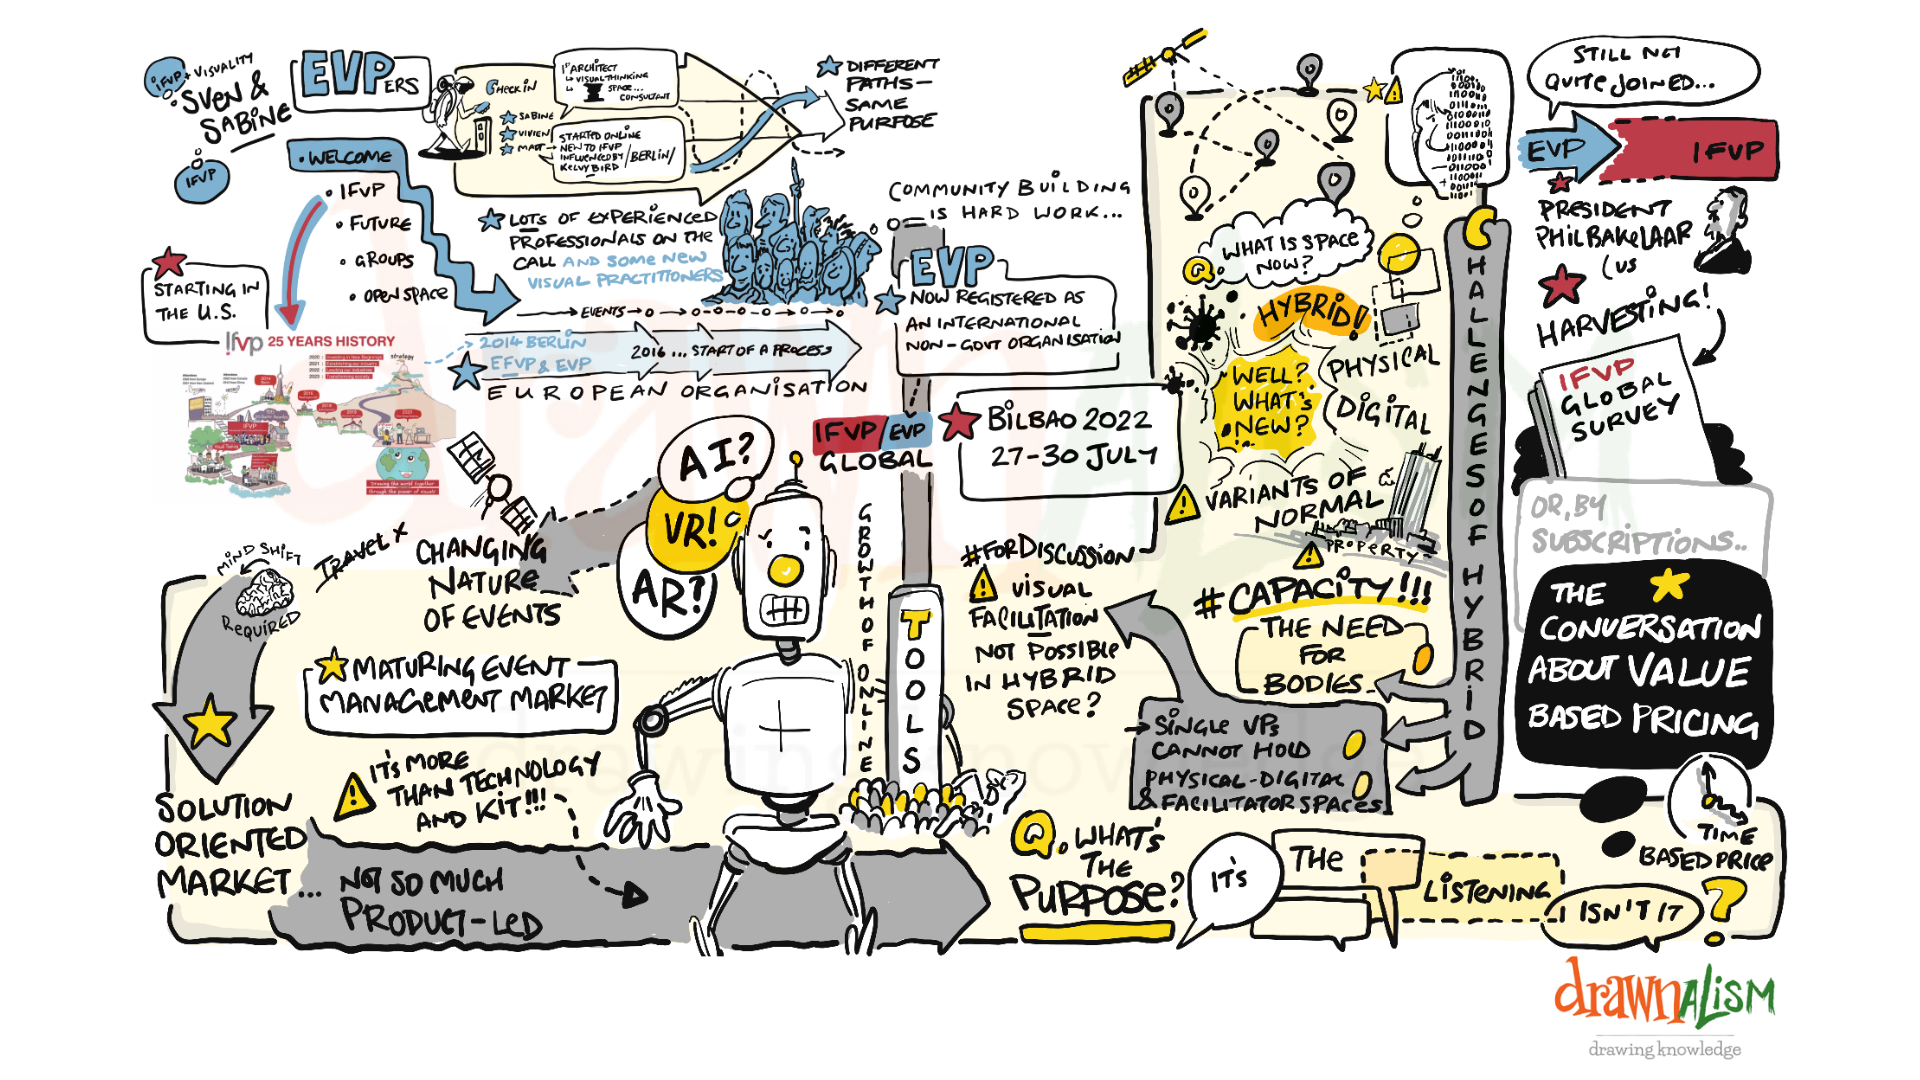 IFVP + VISUALITY
SVEN &
SABINE
IFVP
EVPERS
CHECK IN
SABINE
VIVIEN
MATT
1ST ARCHITECT
VISUAL THINKING
SPACE...
CONSULTANT
STARTED ONLINE
NEW TO IFVP
INFLUENCED BY /BERLIN/
KELVY BIRD
DIFFERENT
PATHS—
SAME
PURPOSE
• WELCOME
• IFVP
• FUTURE
• GROUPS
• OPEN SPACE
STARTING IN
THE U.S.
Ifvp 25 YEARS HISTORY
strategy
IFVP
"Drawing the world together
through the power of visuals"
LOTS OF EXPERIENCED
PROFESSIONALS ON THE
CALL AND SOME NEW
VISUAL PRACTITIONERS
EVENTS
2014 BERLIN
EFVP & EVP
2016 ... START OF A PROCESS
EUROPEAN ORGANISATION
COMMUNITY BUILDING
IS HARD WORK...
EVP
NOW REGISTERED AS
AN INTERNATIONAL
NON-GOVT ORGANISATION
IFVP/EVP
GLOBAL
BILBAO 2022
27-30 JULY
MIND SHIFT
REQUIRED
TRAVEL X
CHANGING
NATURE
OF EVENTS
AI?
VR!
AR?
MATURING EVENT
MANAGEMENT MARKET
IT'S MORE
THAN TECHNOLOGY
AND KIT!!!
SOLUTION
ORIENTED
MARKET...
NOT SO MUCH
PRODUCT-LED
GROWTH OF ONLINE
TOOLS
#FORDISCUSSION
VISUAL
FACILITATION
NOT POSSIBLE
IN HYBRID
SPACE?
Q. WHAT IS SPACE
NOW?
HYBRID!
WELL?
WHAT'S
NEW?
PHYSICAL
DIGITAL
VARIANTS OF
NORMAL
PROPERTY
#CAPACITY!!!
THE NEED
FOR
BODIES
SINGLE VPs
CANNOT HOLD
PHYSICAL-DIGITAL
& FACILITATOR SPACES
CHALLENGES OF HYBRID
STILL NOT
QUITE JOINED...
EVP
IFVP
PRESIDENT
PHIL BAKELAAR
(US
HARVESTING!
IFVP
GLOBAL
SURVEY
OR, BY
SUBSCRIPTIONS..
THE
CONVERSATION
ABOUT VALUE
BASED PRICING
TIME
BASED PRICE
?
Q. WHAT'S
THE
PURPOSE?
IT'S
THE
LISTENING
ISN'T IT
drawnALISM
drawing knowledge